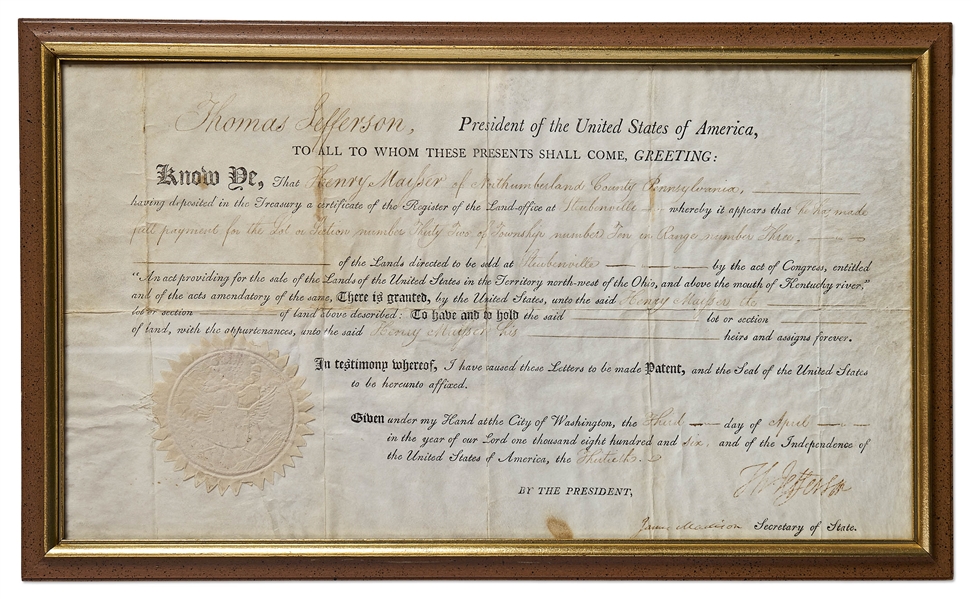 Thomas Jefferson, President of the United States of America,
TO ALL TO WHOM THESE PRESENTS SHALL COME, GREETING:
Know Ye, That Henry Mayser of Northumberland County Pennsylvania,
having deposited in the Treasury a certificate of the Register of the Land-office at Steubenville whereby it appears that he has made
full payment for the Lot or Section number Thirty Two of Township number Ten in Range number Three.
of the Lands directed to be sold at Steubenville by the act of Congress, entitled
"An act providing for the sale of the Lands of the United States in the Territory north-west of the Ohio, and above the mouth of Kentucky river."
and of the acts amendatory of the same, There is granted, by the United States, unto the said Henry Mayser the
lot or section of land above described: To have and to hold the said lot or section
of land, with the appurtenances, unto the said Henry Mayser his heirs and assigns forever.
In testimony whereof, I have caused these Letters to be made Patent, and the Seal of the United States
to be hereunto affixed.
Given under my Hand at the City of Washington, the Third day of April
in the year of our Lord one thousand eight hundred and six, and of the Independence of
the United States of America, the Thirtieth.
Th: Jefferson
BY THE PRESIDENT,
James Madison Secretary of State.